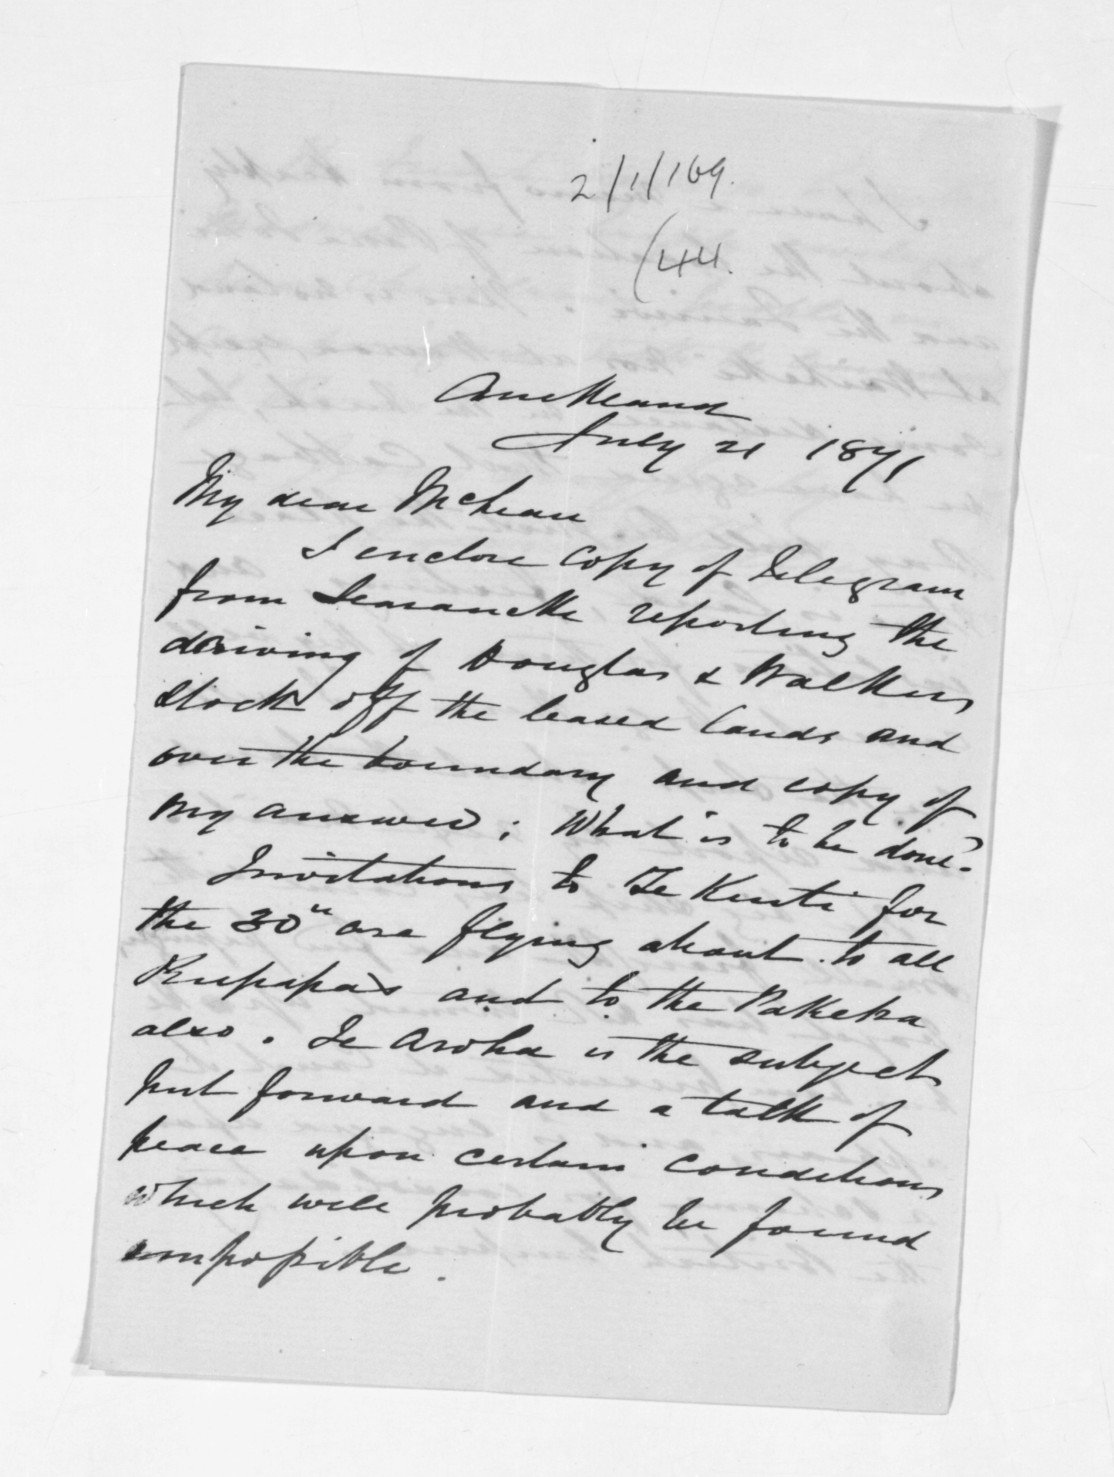 2/1/169.
(44.
Auckland
July 21 1871
My dear McLean
I enclose copy of Telegram
from Searancke reporting the
driving of Douglas & Walkers
stock off the leased lands and
over the boundary and copy of
my answer; What is to be done?
Invitations to Te Kuiti for
the 30th are flying about to all
Kupapas and to the Pakeha
also. Te Aroha is the subject
put forward and a talk of
peace upon certain conditions
which will probably be found
impossible.